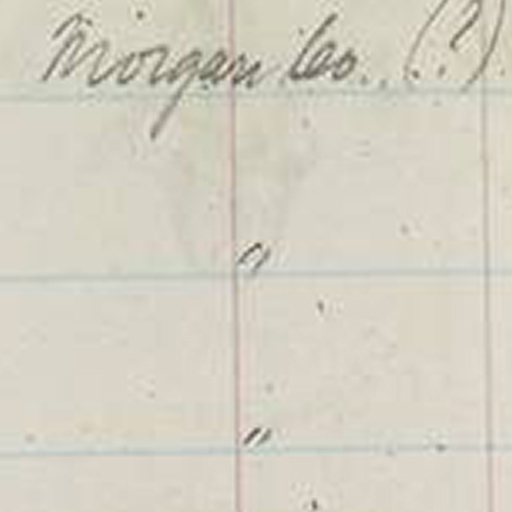 Morgan Co. (?)
"
"